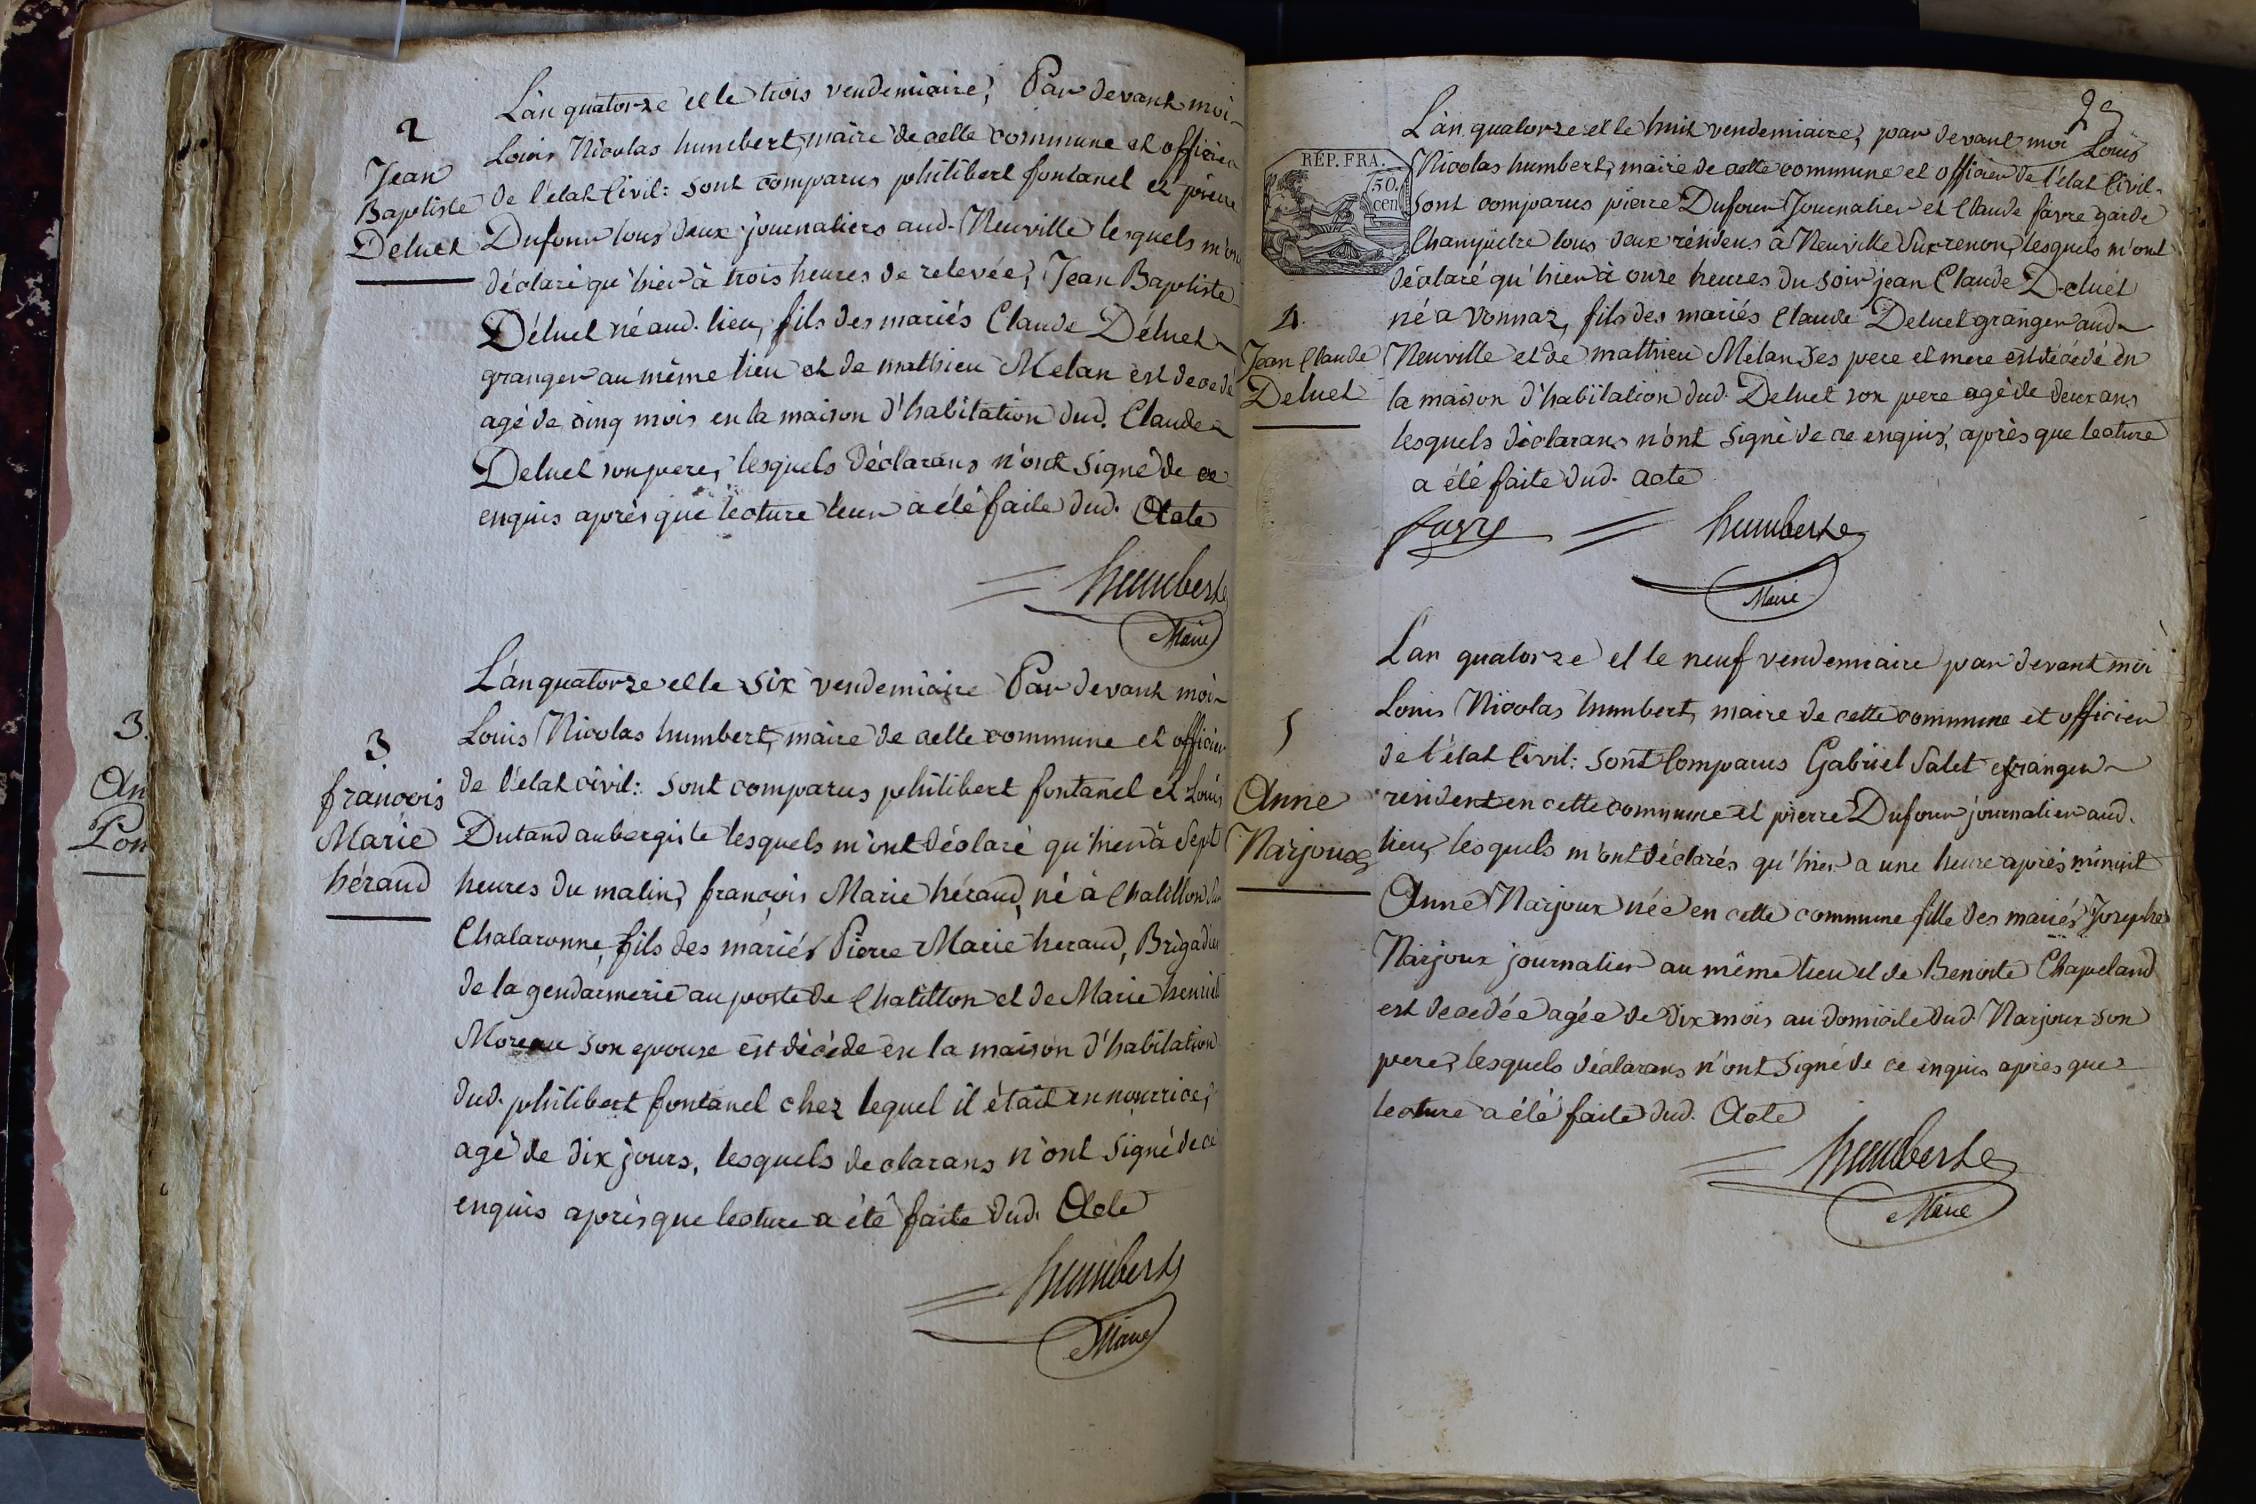 3.
An
Pon
2
Jean
Baptiste
Deluet
L'an quatorze et le trois vendemiaire, Par devant moi
Louis Nicolas humbert, maire de cette commune et officier
de l'état Civil: sont comparus philibert fontanel et pierre
Dufour tous deux journaliers aud. Neuville lesquels m'ont
déclaré qu'hier à trois heures de relevée, Jean Baptiste
Déluet né aud. lieu, fils des mariés Claude Déluet
granger au même lieu et de mathieu Melan est decedé
agé de cinq mois en la maison d'habitation dud. Claude
Deluet son pere, lesquels déclarans n'ont signé de ce
enquis après que lecture leur a été faite dud. Acte
humbert
Maire
3
françois
Marie
héraud
L'an quatorze et le six vendemiaire Par devant moi
Louis Nicolas humbert, maire de cette commune et officier
de l'état civil: sont comparus philibert fontanel et Louis
Dutand aubergiste lesquels m'ont déclaré qu'hier à sept
heures du matin, françois Marie héraud, né à Chatillon sur
Chalaronne, fils des mariés Pierre Marie heraud, Brigadier
de la gendarmerie au poste de Chatillon et de Marie henriet
Moreau son epouse est décédé en la maison d'habitation
dud. philibert fontanel chez lequel il était en nourrice,
agé de dix jours, lesquels declarans n'ont signé de ce
enquis après que lecture a été faite dud. Acte
humbert
Maire
REP. FRA.
50.
cen
4.
Jean Claude
Deluet
L'an quatorze et le huit vendemiaire, par devant moi Louis
Nicolas humbert, maire de cette commune et officier de l'état Civil.
sont comparus pierre Dufour Journalier et Claude favre garde
Champêtre tous deux résidens à Neuville sur renon, lesquels m'ont
déclaré qu'hier à onze heures du soir jean Claude Deluet
né a vonnaz, fils des mariés Claude Deluet granger aud.
Neuville et de mathieu Mélan ses pere et mere est décédé en
la maison d'habitation dud. Deluet son pere agé de deux ans
lesquels déclarans n'ont signé de ce enquis, après que lecture
a été faite dud. acte
favre humbert
Maire
5
Anne
Narjoux
L'an quatorze et le neuf vendemiaire par devant moi
Louis Nicolas humbert, maire de cette commune et officier
de l'état Civil: sont Comparus Gabriel Salet granger
résident en cette commune et pierre Dufour journalier aud.
lieu, lesquels m'ont déclarés qu'hier a une heure après minuit
Anne Narjoux née en cette commune fille des mariés Josephe
Narjoux journalier au même lieu et de Benoite Chapeland
est decedée agée de dix mois au domicile dud. Narjoux son
pere, lesquels déclarans n'ont signé de ce enquis après que
lecture a été faite dud. Acte
humbert
Maire